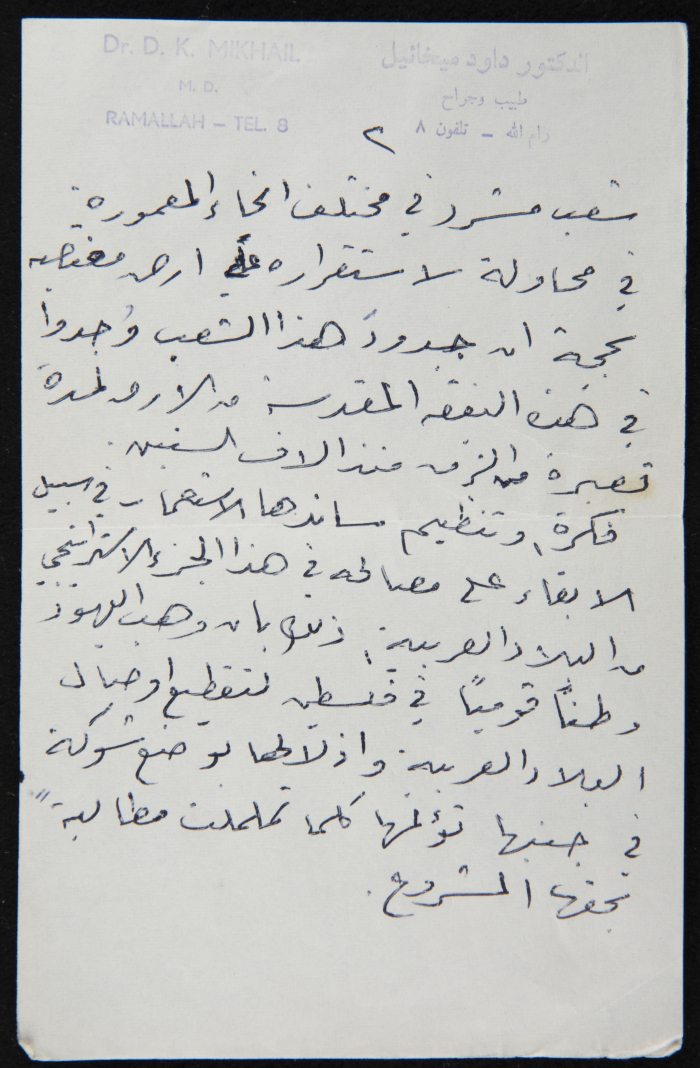 Dr. D. K. MIKHAIL
M. D.
RAMALLAH – TEL. 8
الدكتور داود ميخائيل
طبيب وجراح
رام الله – تلفون ٨
٢
شعب مشرد في مختلف انحاء المعمورة
في محاولة لاستقراره على ارض مغتصبه
بحجة ان جدود هذا الشعب وُجدوا
في هذه البقعه المقدسة من الارض لمدة
قصيرة من الزمن منذ الاف السنين.
فكرة، وتنظيم ساندها الاستعمار في سبيل
الابقاء على مصالحه في هذا الجزء الاستراتيجي
من البلاد العربية، ذلك بان وهب اليهود
وطناً قومياً في فلسطين لتقطيع اوصال
البلاد العربية واذلالها بوضع شوكة
في جنبها تؤلمها كلما تململت مطالبةً
بحقها المشروع.